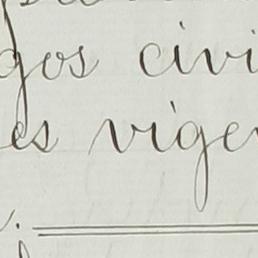 gos civi
es vige